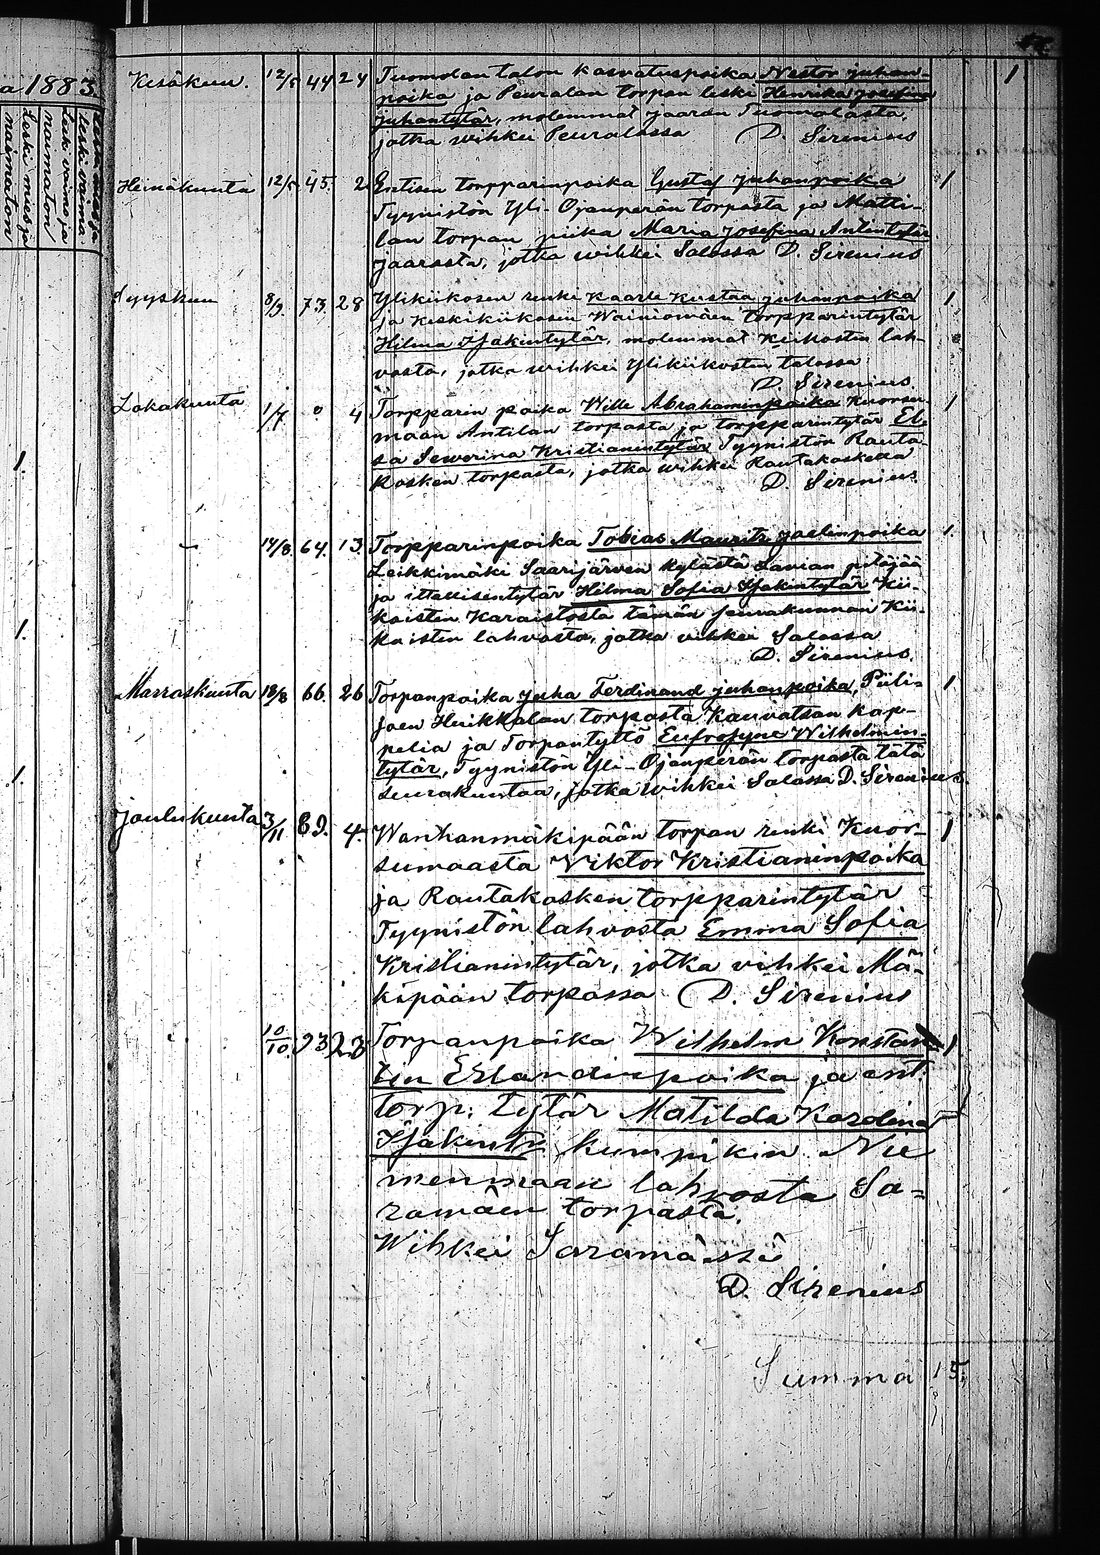 a 1883.
leski vaimo
Leski vaimo ja
naimaton
Leski mies ja
naimaton
1.
1.
1.
Kesäkuu. 12/5 44 24 Tuomolan talon kasvatuspoika Nestor Juhan- 1
poika ja Peuralan torpan leski Henrika Josefina
Juhantytär, molemmat Jaaran Tuomolasta,
jotka wihkei Peuralassa D. Sirenius
Heinäkuuta 12/5 45. 2 Entisen torpparinpoika Gustaf Juhanpoika 1
Tyynistön Yli-Ojanperän torpasta ja Matti-
lan torpan piika Maria Josefina Antintytär
Jaarasta, jotka wihkei Salossa D. Sirenius
Syyskuu 8/9. 73. 28 Ylikiikosen renki Kaarle Kustaa Juhanpoika 1
ja Keskikiikosen Wainiomäen torpparintytär
Hilma Isakintytär, molemmat Kiikosten lah-
vosta, jotka wihkei Ylikiikosten talossa
D. Sirenius.
Lokakuuta 1/7 0 4 Torpparin poika Wille Abrahaminpoika Kuorsu- 1
maan Antilan torpasta ja torpparintytär El-
sa Sewerina Kristianintytär Tyynistön Rauta-
kosken torpasta, jotka wihkei Rautakoskella
D. Sirenius
- 14/8. 64. 13. Torpparinpoika Tobias Mauritz Joelinpoika 1.
Leikkimäki Saarijärven kylästä Lavian pitäjää
ja ittellisentytär Hilma Sofia Isakintytär Kii-
koisten Karaistosta tämän seurakunnan Kii-
koisten lahvosta, jotka vihkei Salossa
D. Sirenius.
Marraskuuta 18/8 66. 26 Torpanpoika Juha Ferdinand Juhanpoika, Piili- 1
joen Huikkalan torpasta Kauvatsan kap-
pelia ja Torpantyttö Eufrosyne Wilhelmin-
tytär, Tyynistön Yli-Ojanperän torpasta tätä
seurakuntaa, jotka wihkei Salossa D. Sirenius.
Joulukuuta 3/11 89. 4. Wanhanmäkipään torpan renki Kuor- 1
sumaasta Viktor Kristianinpoika
ja Rautakosken torpparintytär
Tyynistön lahvosta Emma Sofia
Kristianintytär, jotka vihkei Mä-
kipään torpassa D. Sirenius
10/10. 93. 23 Torpanpoika Wilhelm Konstan 1
tin Erlandinpoika ja ent.
torp. tytär Matilda Karolina
Isakintr. kumpikin Nie
menmaan lahvosta Sa=
ramäen torpasta.
Wihkei Saramäessä
D. Sirenius
Summa 15.